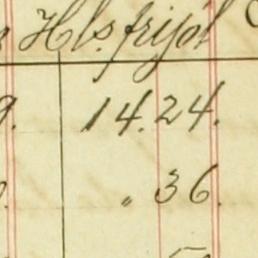 Hls. frijol
9. 14.24.
" 36.